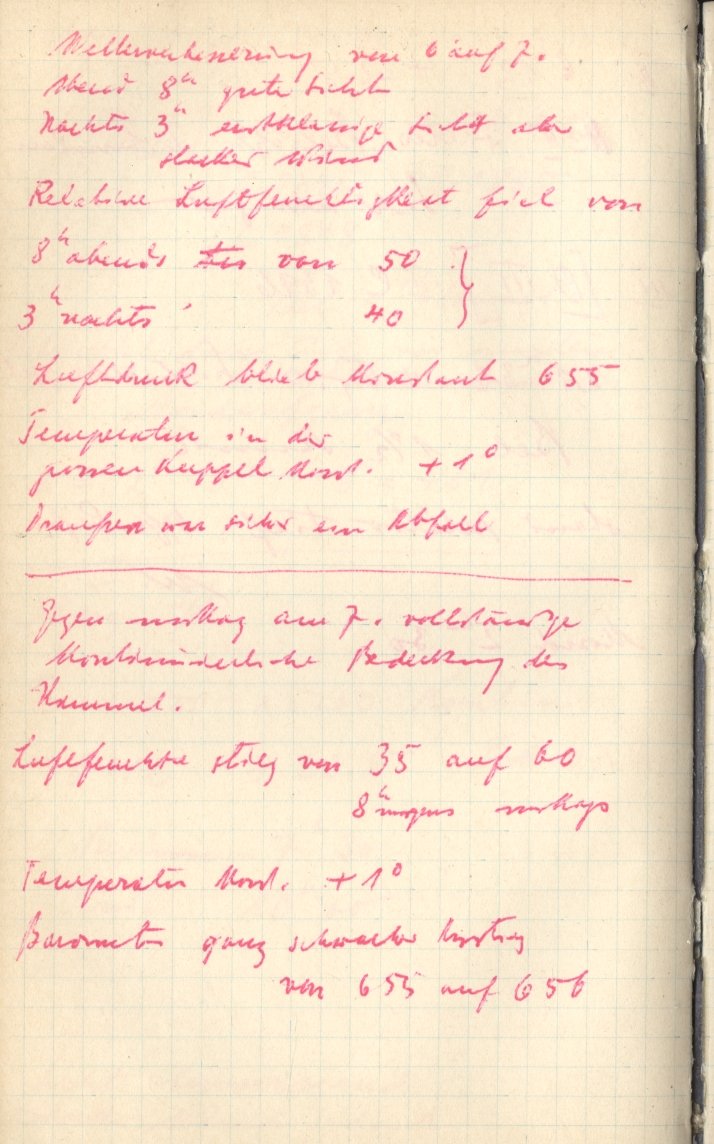 Wetterverbesserung von 6 auf 7.
Abend 8h gute Sicht
Nachts 3h erstklassige Sicht aber
starker Wind
Relative Luftfeuchtigkeit fiel von
8h abends von 50
3h nachts 40
Luftdruck blieb konstant 655
Temperatur in der
grossen Kuppel konst. + 1°
Draußen war sicher ein Abfall
Gegen mittag am 7. vollständige
kontinuierliche Bedeckung des
Himmel.
Luftfeuchte stieg von 35 auf 60
8h morgens mittags
Temperatur konst. + 1°
Barometer ganz schwacher Anstieg
von 655 auf 656